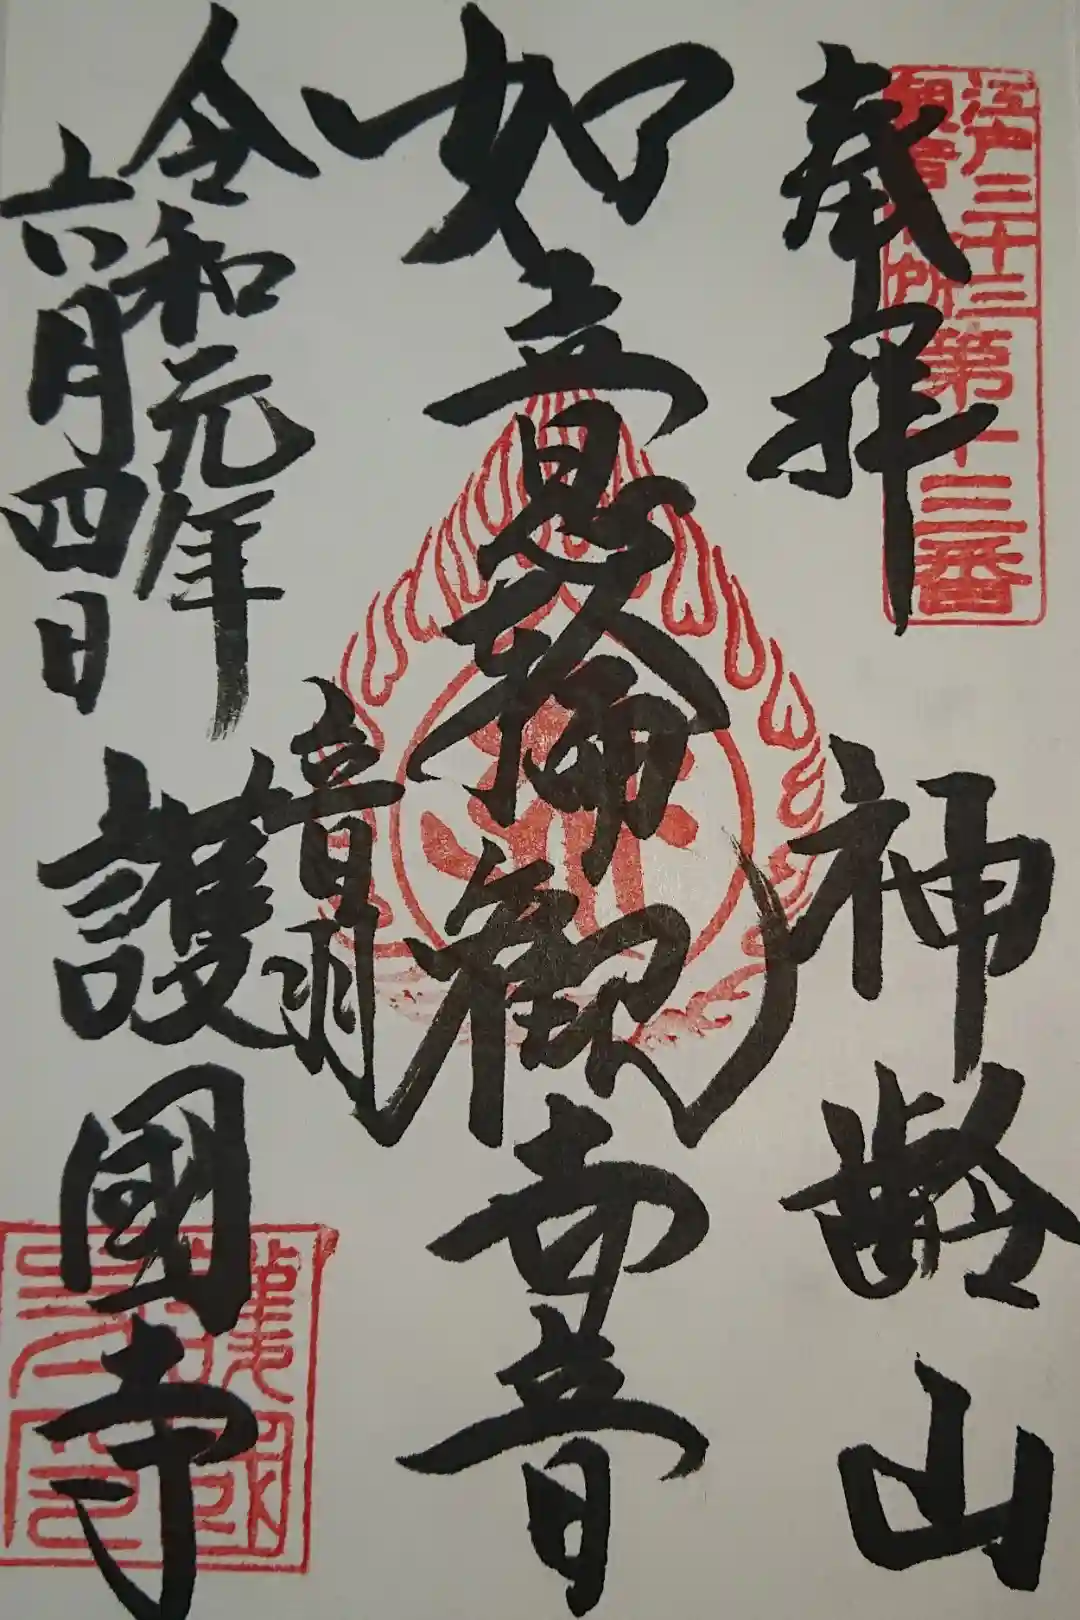 奉拝
江戸三十三
観音札所第十三番
神齢山
如意輪観世音
令和元年
六月四日
音羽
護國寺